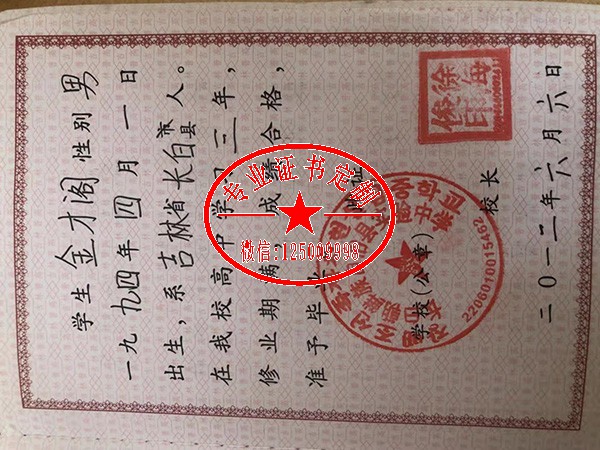 学生 金才阁 性别 男
一九九四年四月一日
出生，系吉林省长白县市人。
在我校高中学习三年，
修业期满，成绩合格，
准予毕业
学校(公章)
校长
二〇一二年六月六日
专业证书定制
微信:125009998
2206010015462